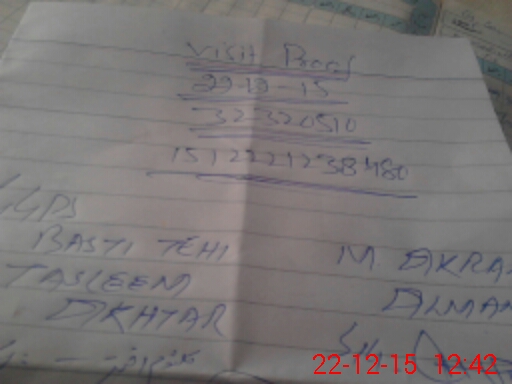 Visit Proof
22-12-15
32320510
1512221238480
GGPS
BASTI TEHI
TASLEEM
AKHTAR
M. AKRA
ALMA
22-12-15 12:42